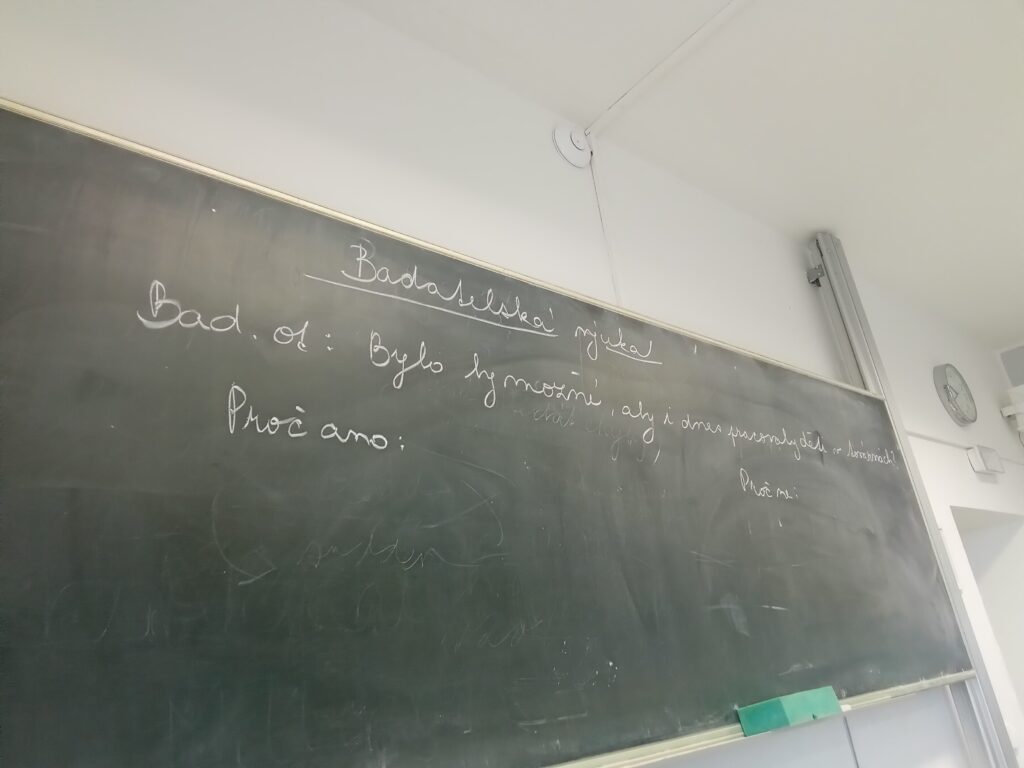 Badatelská výuka
Bad. ot: Bylo by možné, aby i dnes pracovaly děti v továrnách?
Proč ano:
Proč ne: